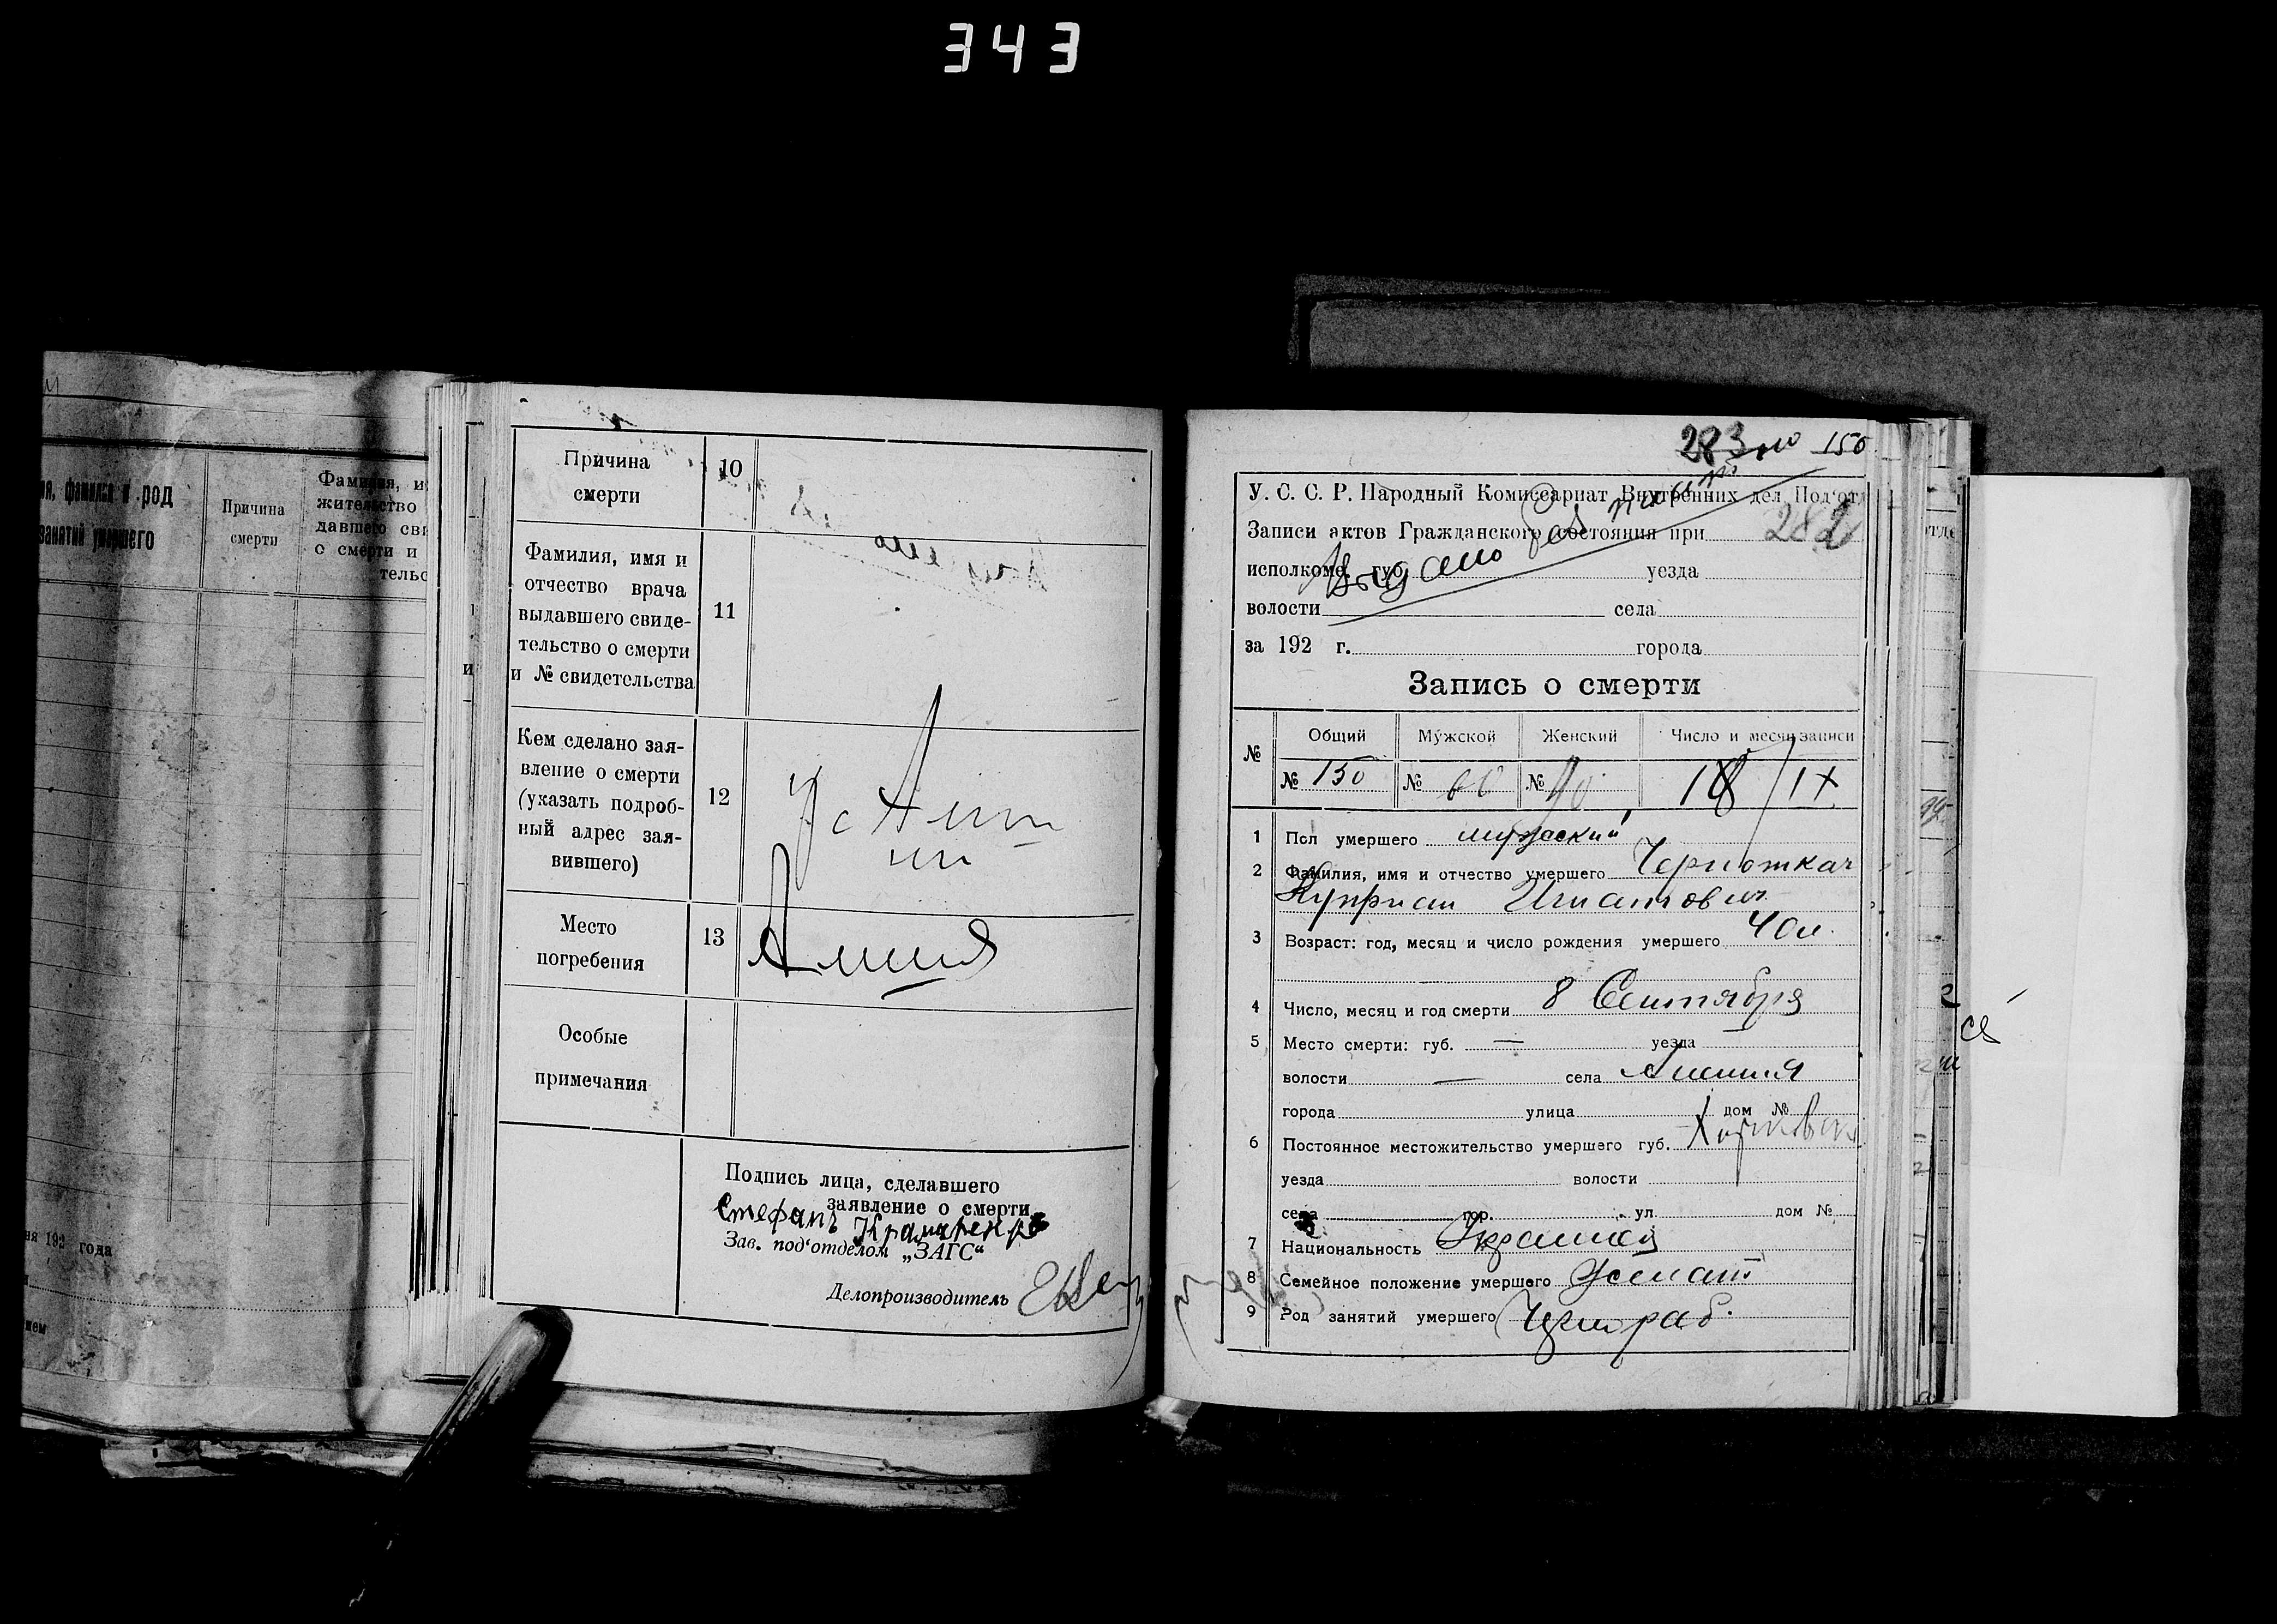 343
я, фамилия и род
занятий умершего
Причина
смерти
Фамилия, и
жительство
давшего сви
о смерти и
тельс
ня 192 года
Причина
смерти
10
Фамилия, имя и
отчество врача
выдавшего свиде-
тельство о смерти
и № свидетельства
11
Кем сделано зая-
вление о смерти
(указать подроб-
ный адрес зая-
вившего)
12
Место
погребения
13
Особые
примечания
Подпись лица, сделавшего
заявление о смерти
Стефанъ Крамаренко
Зав. под‘отделом „ЗАГС“
Делопроизводитель
283 150
У. С. С. Р. Народный Комиссариат Внутренних дел Под‘отд
Записи актов Гражданского состояния при 282
исполкоме. губ. уезда
Выдано
волости села
за 192 г. города
Запись о смерти
№ Общий Мужской Женский Число и месяц записи
№ 150 № № 18/IX
1 Пол умершего мужский
2 Фамилия, имя и отчество умершего Черноткач
Куприан Игнатович
3 Возраст: год, месяц и число рождения умершего 40 л.
4 Число, месяц и год смерти 8 Сентября
5 Место смерти: губ. — уезда
волости — села
города улица дом №
6 Постоянное местожительство умершего губ.
уезда волости
села гор. ул. дом №
7 Национальность
8 Семейное положение умершего
9 Род занятий умершего